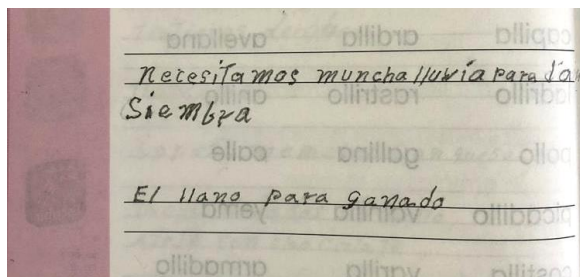 necesitamos muncha lluvia para la
Siembra
El llano para ganado